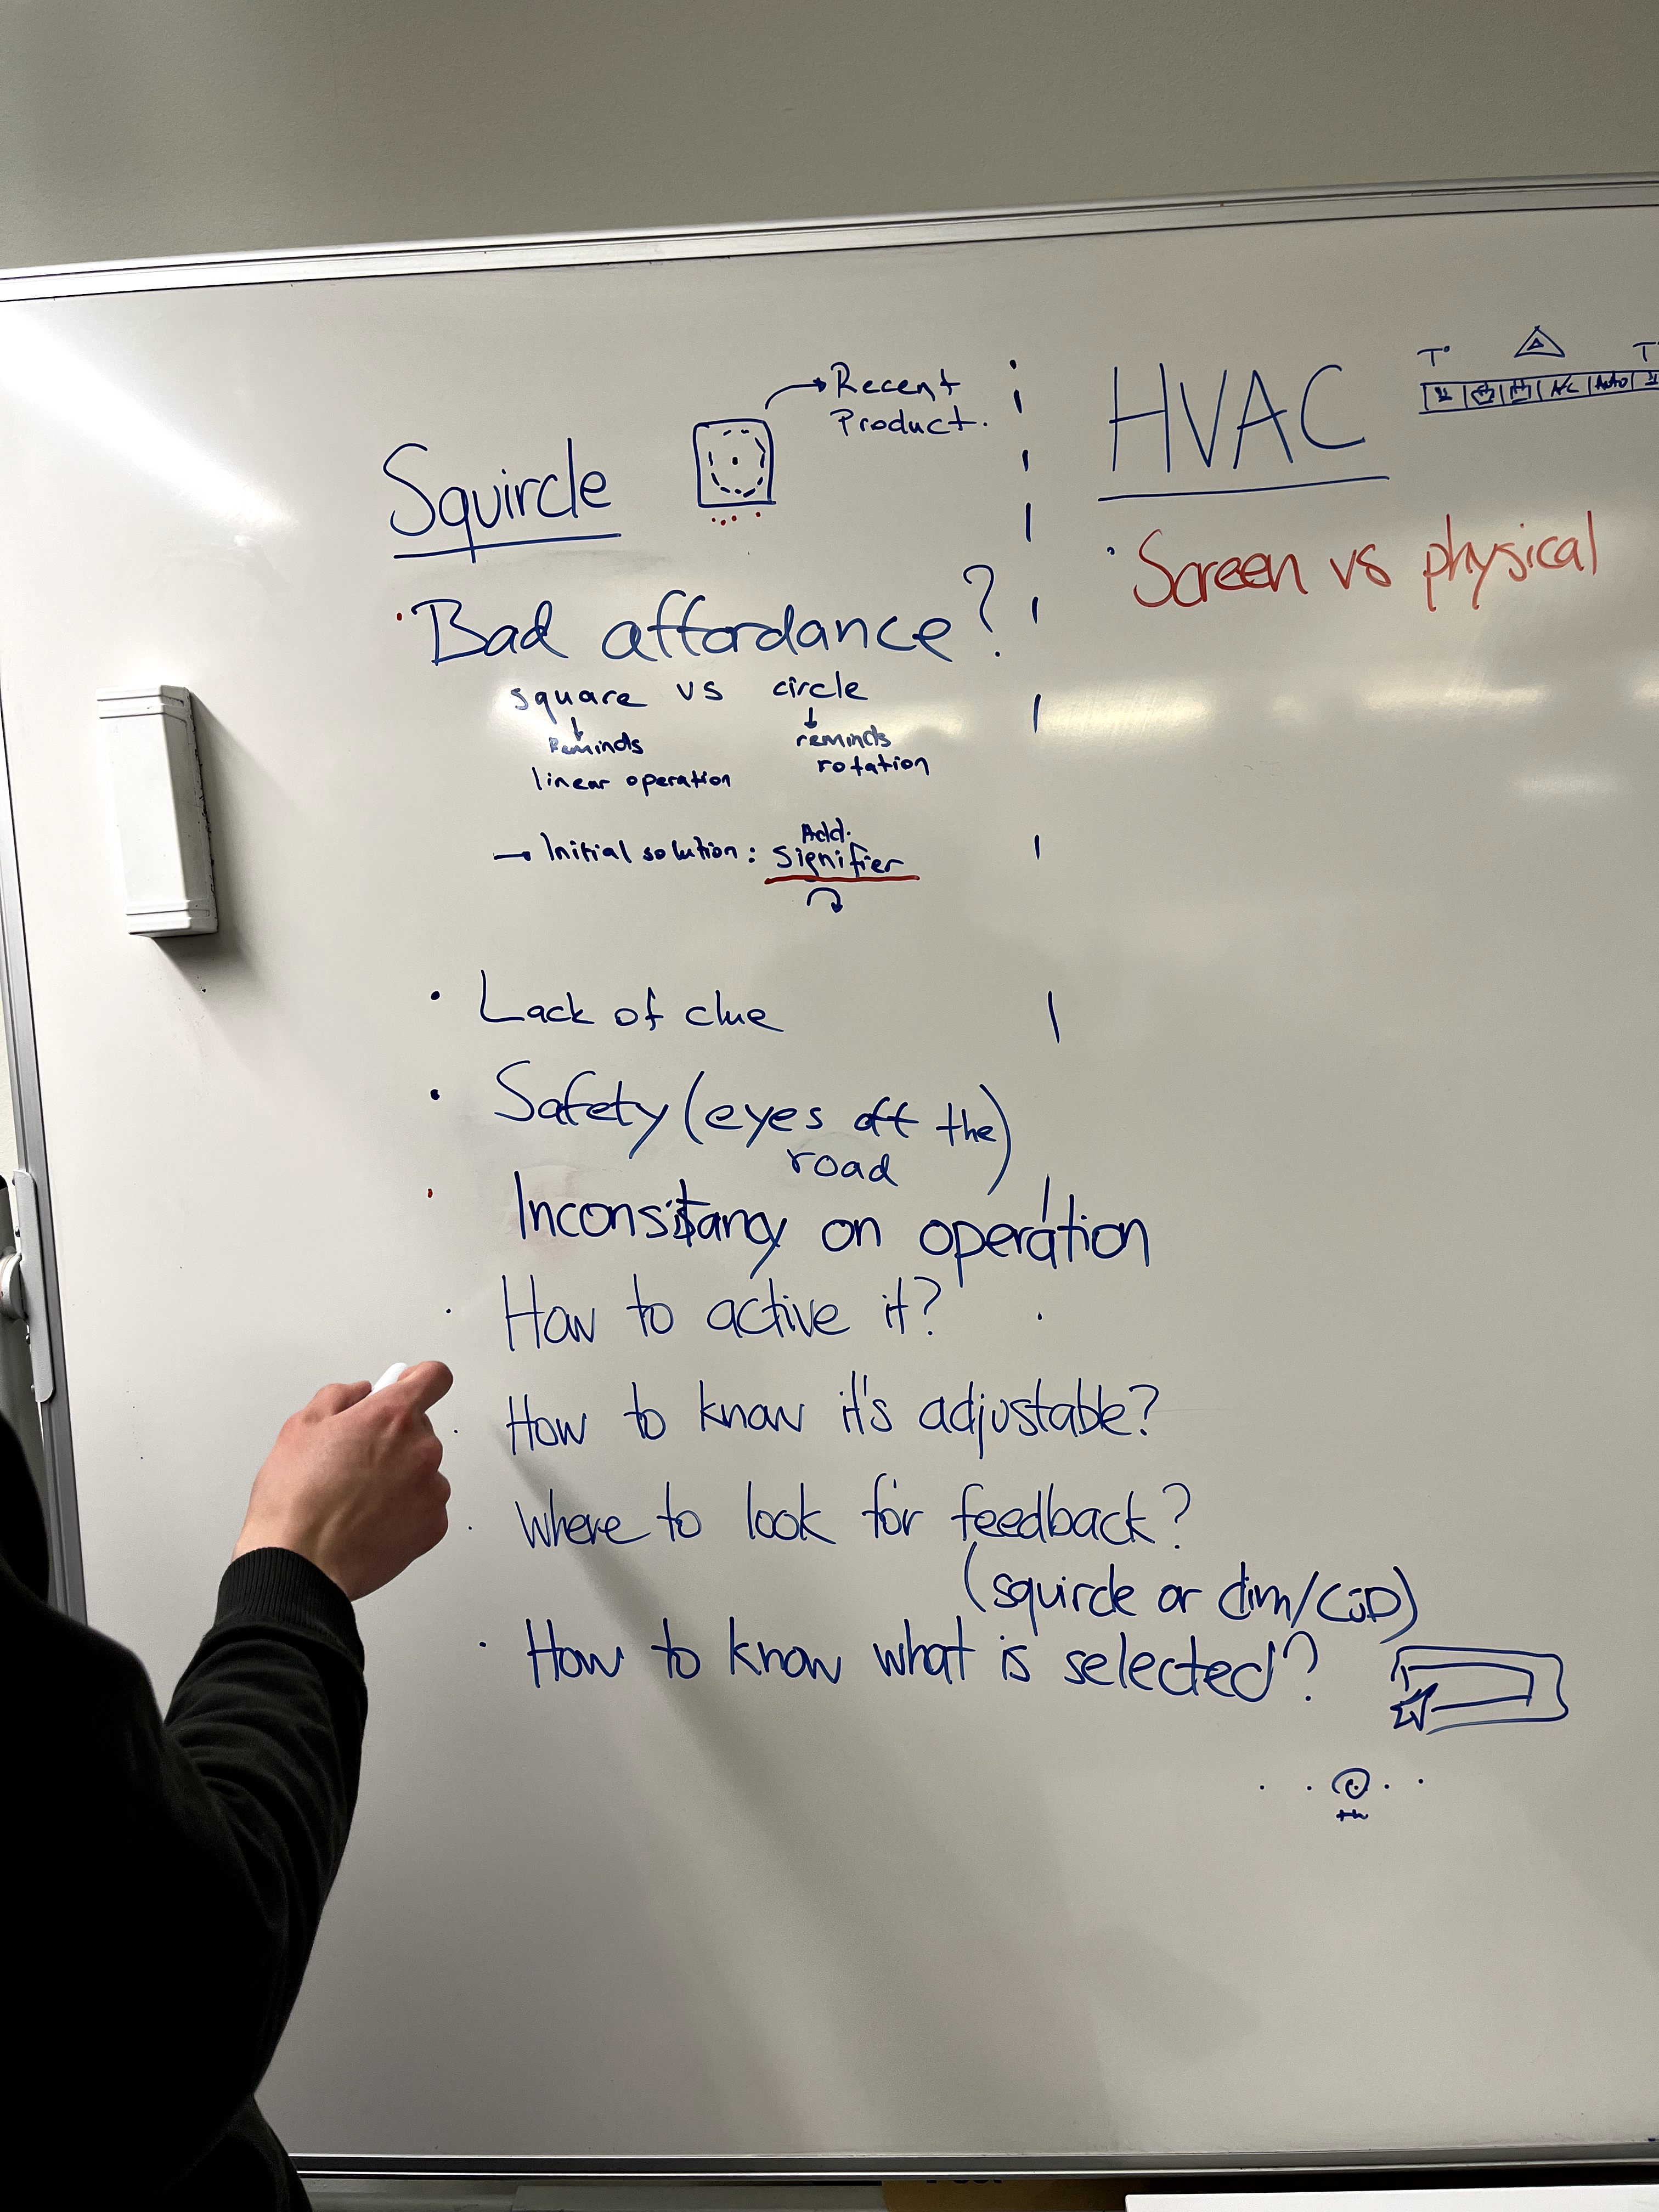 Squircle
Recent
Product.
Bad affordance?
square vs circle
Reminds
linear operation
reminds
rotation
Initial solution: Add.
signifier
Lack of clue
Safety (eyes off the
road)
Inconsistancy on operation
How to active it?
How to know it's adjustable?
Where to look for feedback?
(squircle or dim/CSD)
How to know what is selected?
HVAC
T° T°
A/C Auto
Screen vs physical